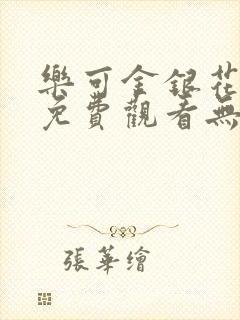 樂可金銀花
免費觀看無
張華繪